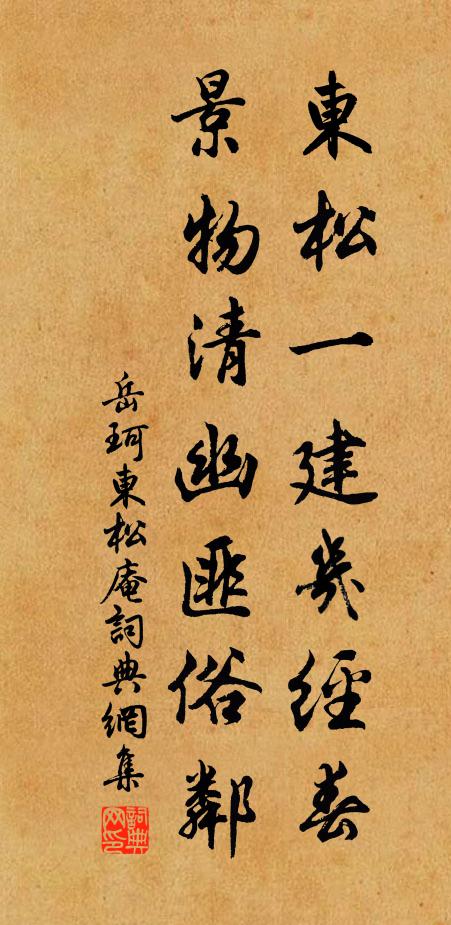 東松一建幾經春
景物清幽匪俗鄰
岳珂東松庵詞典網集
詞典網印